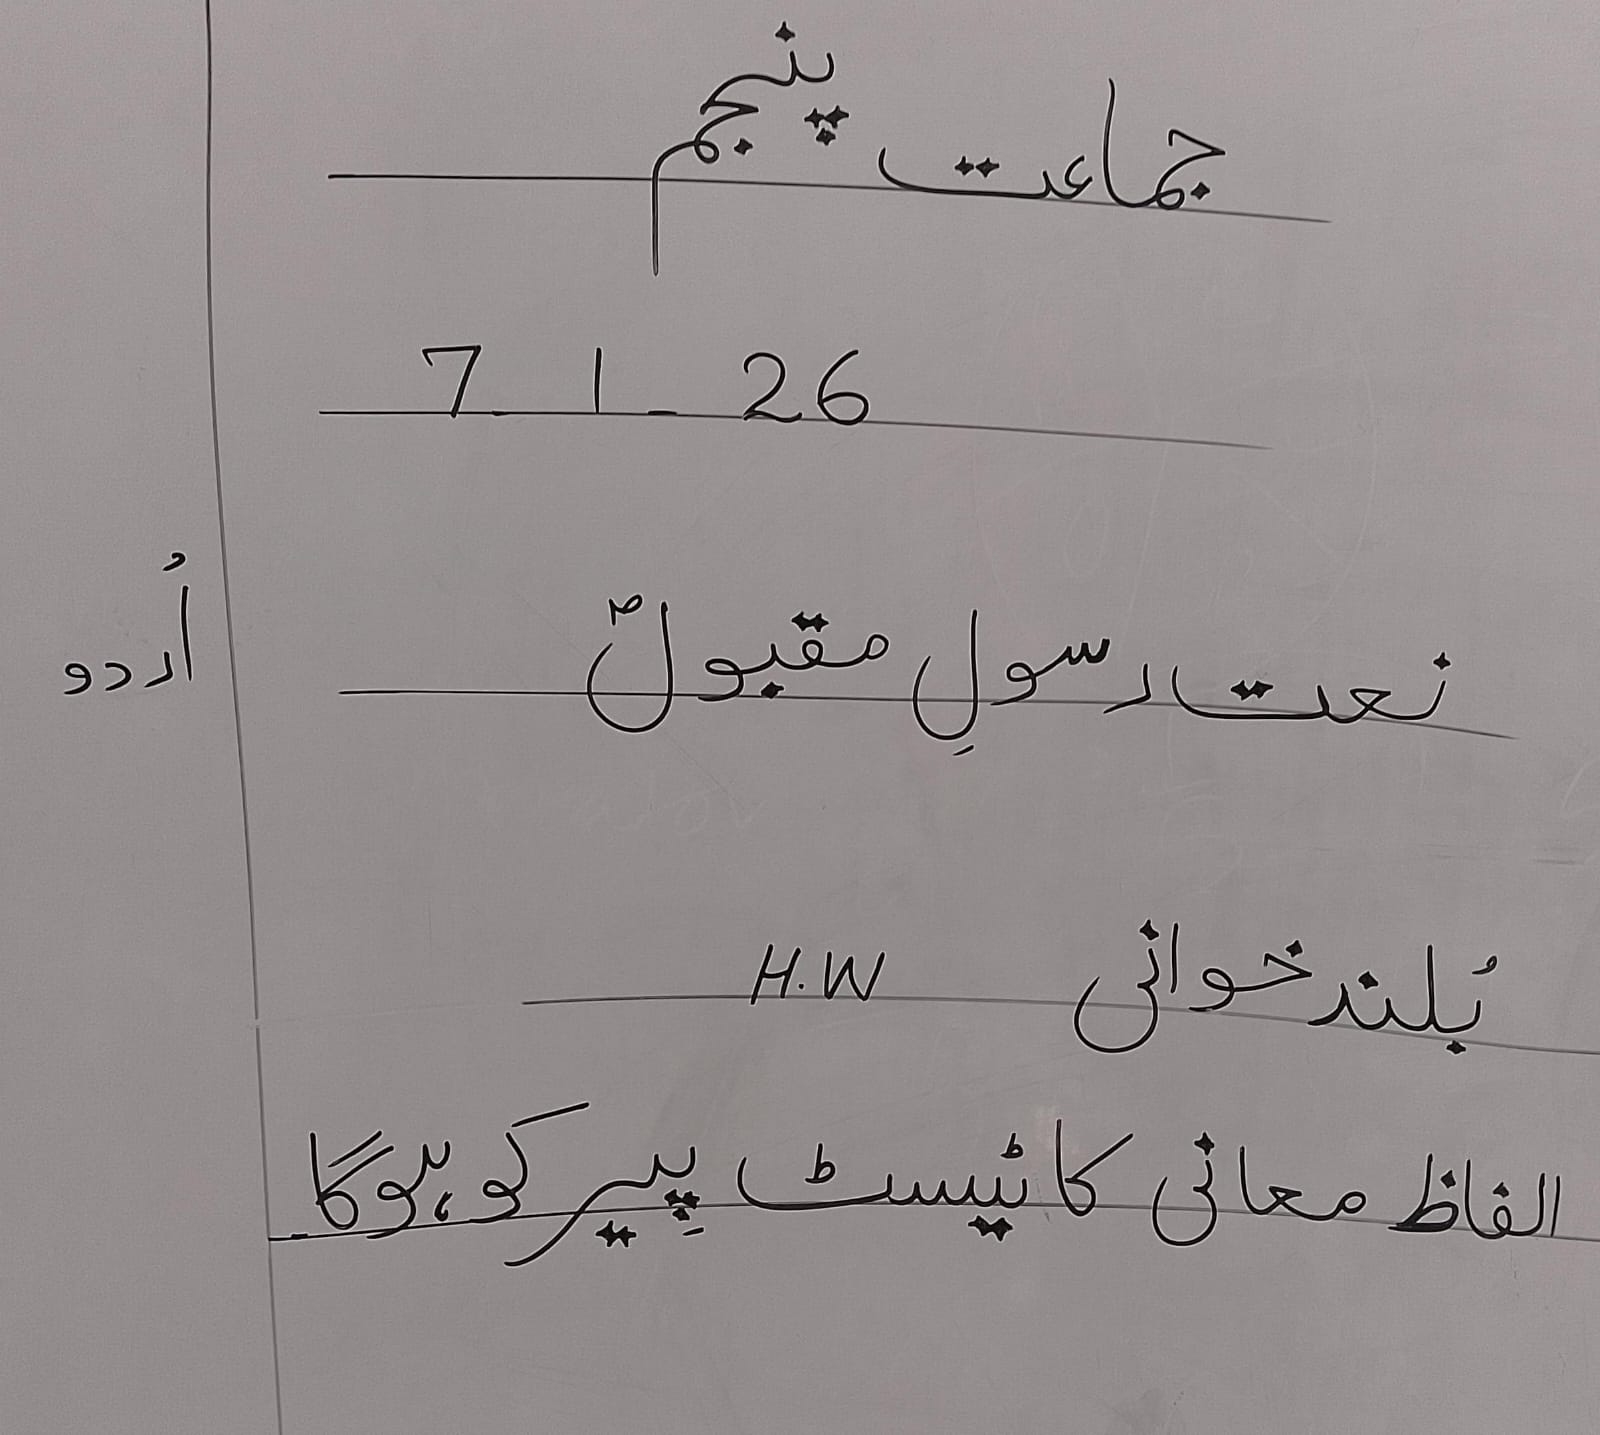 جماعت پنجم
7-1-26
نعت رسولِ مقبولؐ
اُردو
بُلند خوانی H.W
الفاظ معانی کا ٹیسٹ پِیر کو ہوگا۔